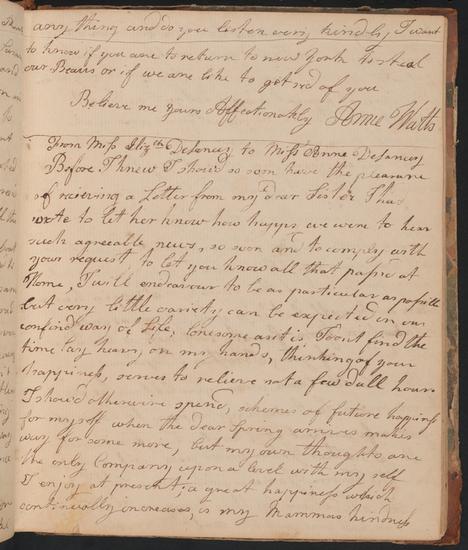 any thing and do you listen very kindly, I want
to know if you are to return to new York to steal
our Beaus or if we are like to get rid of you
Believe me yours Affectionately Anne Watts
From Miss Elizth DeLancey to Miss Anne DeLancey
Before I knew I shou'd so soon have the pleasure
of recieving a Letter from my dear Sister I had
wrote to let her know how happy we were to hear
such agreeable news, so soon am to comply with
your request to let you know all that pass'd at
Home, I will endeavour to be as particular as possible
but very little variety can be expected in our
confin'd way of Life, lonesome as it is, I don't find the
time lay heavy on my hands, thinking of your
happiness, serves to relieve not a few dull hours
I shou'd otherwise spend, schemes of future happiness
for myself when the dear Spring arrives makes
way for some more, but my own thoughts are
the only Company upon a level with my self
I enjoy at present; a great happiness which
continually increases, is my Mammas kindness